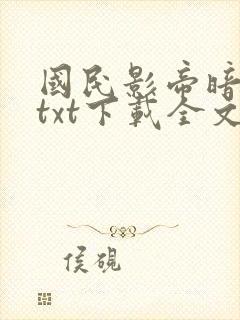 國民影帝暗
txt下載全文
侯硯